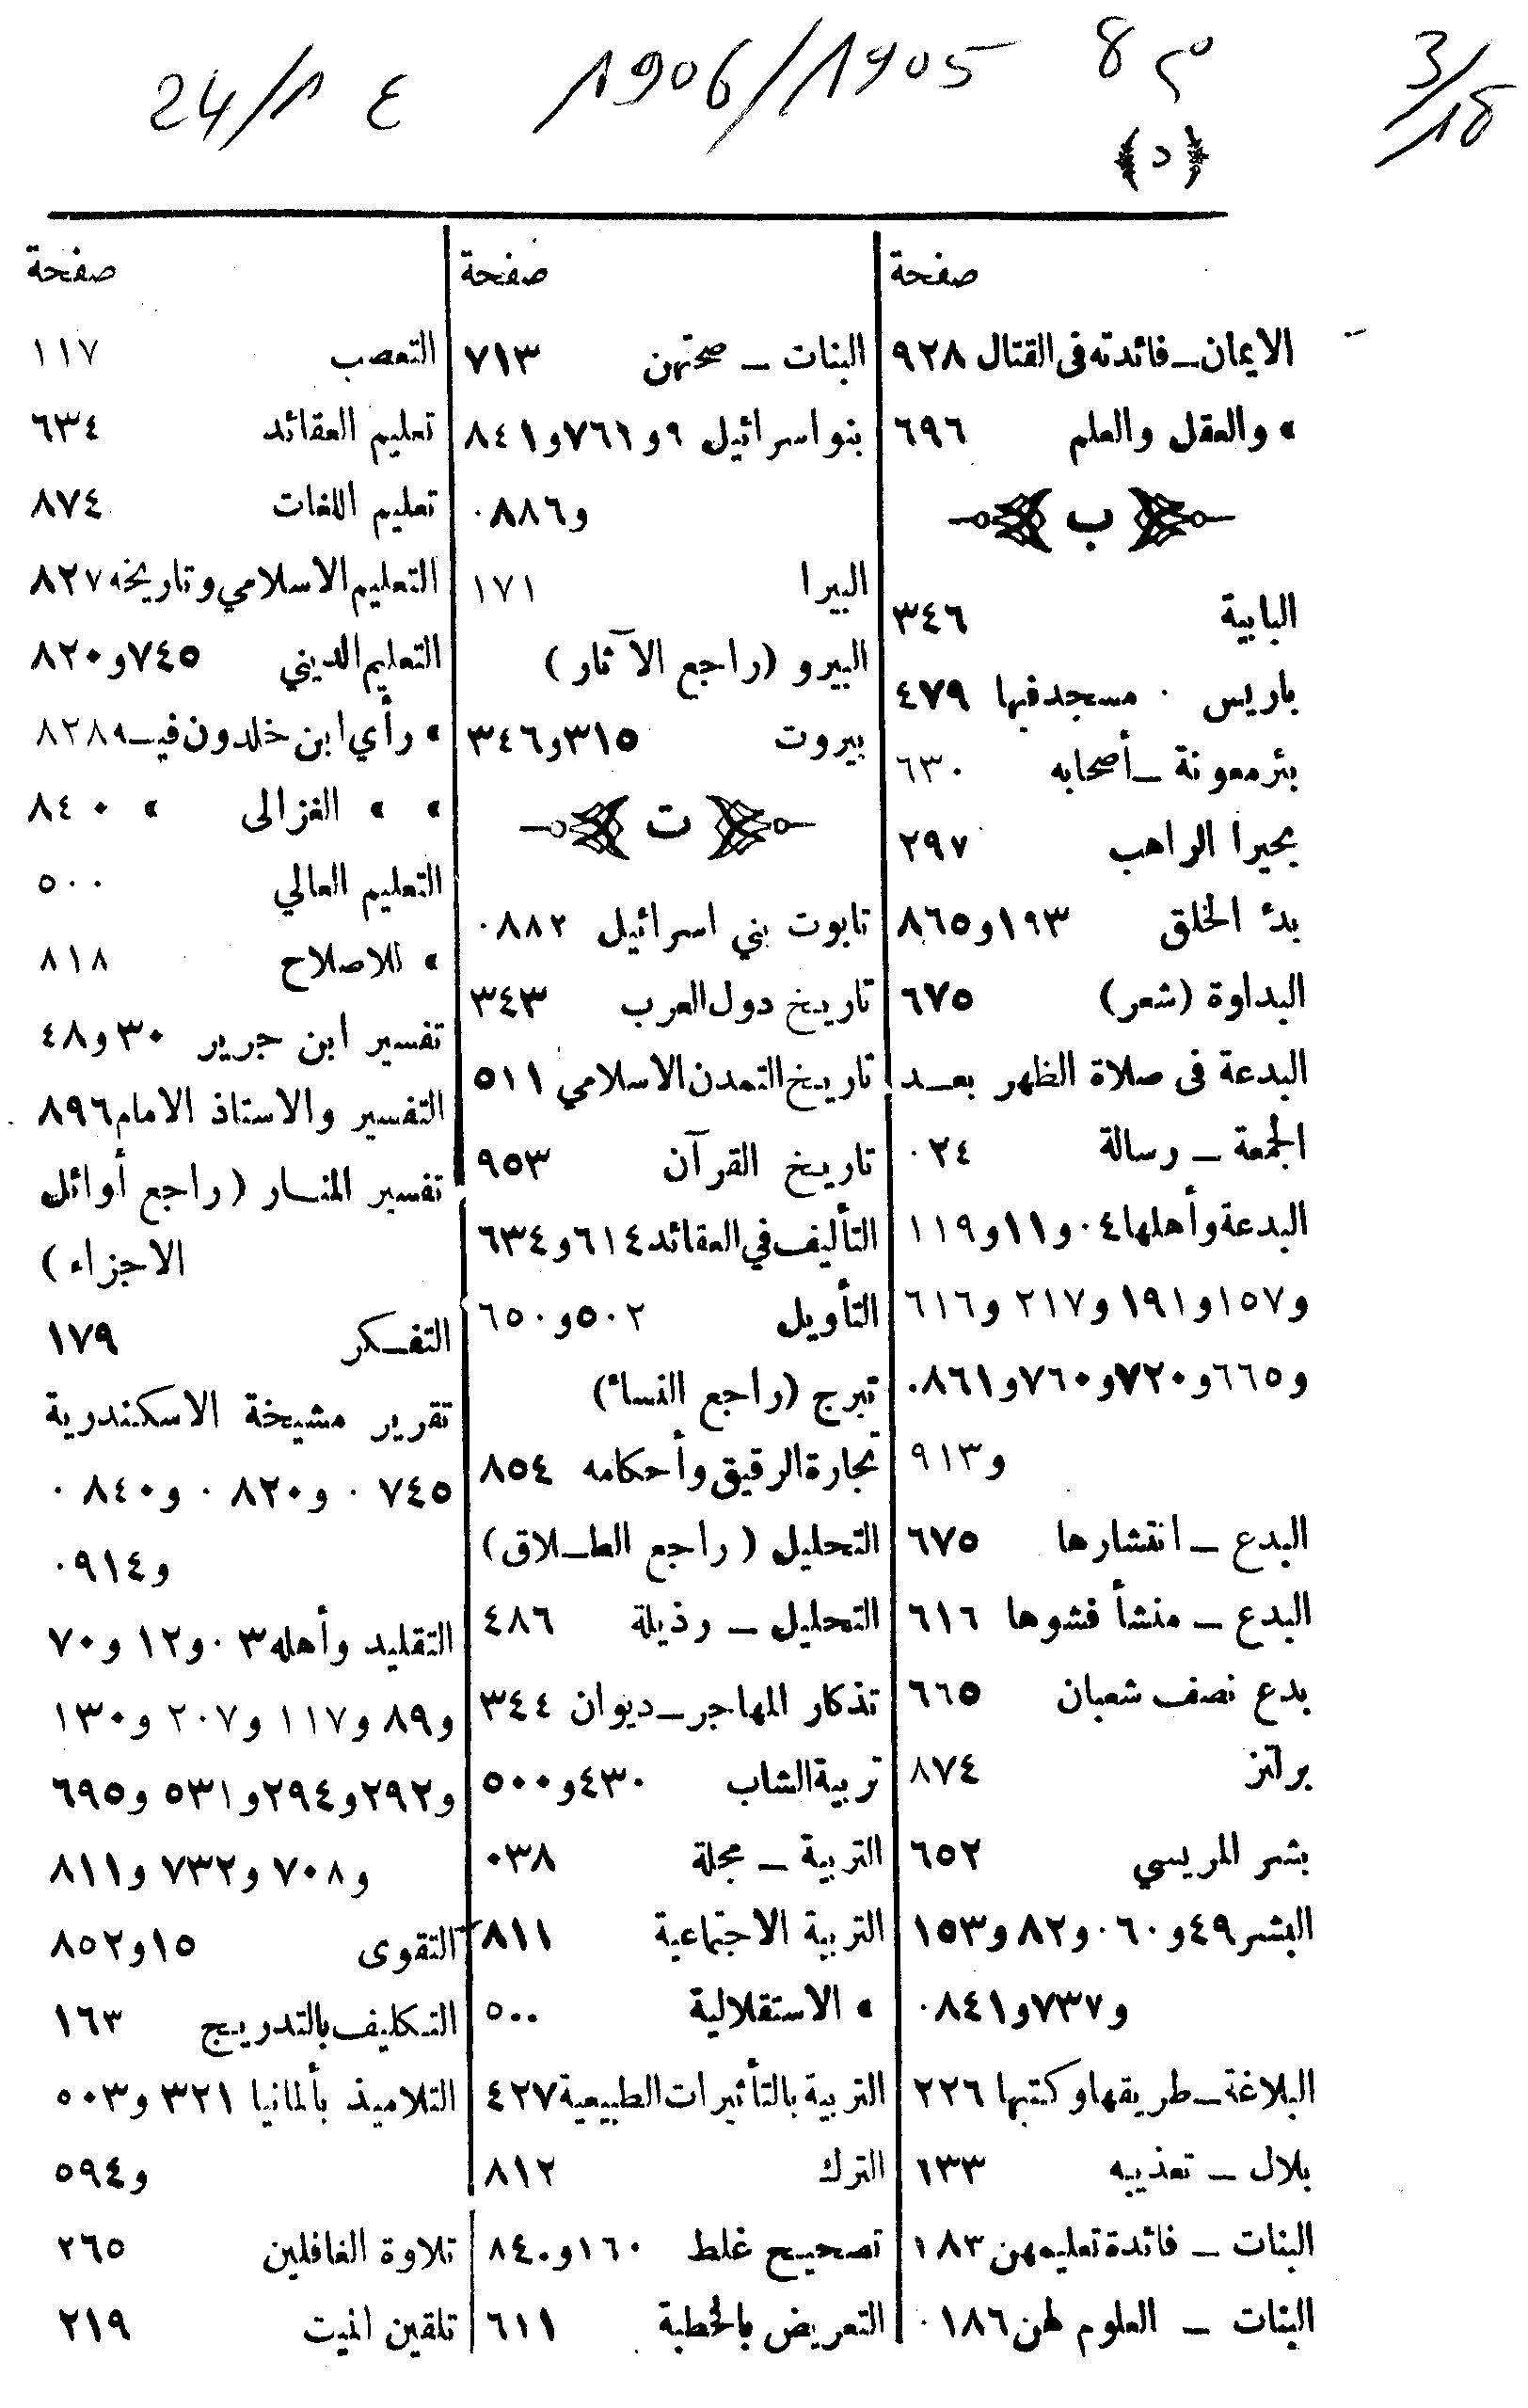 3/18
م 8
1906/1905
ع 24/1
﴿د﴾
صفحة
الايمان ــ فائدته فى القتال ٩٢٨
» والعقل والعلم ٦٩٦
﴿ ب ﴾
البابية ٣٤٦
باريس ٠ مسجد فيها ٤٧٩
بئر معونة ــ أصحابه ٦٣٠
بحيرا الراهب ٢٩٧
بدء الخلق ١٩٣ و٨٦٥
البداوة (شعر) ٦٧٥
البدعة فى صلاة الظهر بعــد
الجمعة ــ رسالة ٠٢٤
البدعة وأهلها ٠٤ و١١ و١١٩
و١٥٧ و١٩١ و٢١٧ و٦١٦
و٦٦٥ و٧٢٠ و٧٦٠ و٨٦١٠
و٩١٣
البدع ــ انتشارها ٦٧٥
البدع ــ منشأ فشوها ٦١٦
بدع نصف شعبان ٦٦٥
برلتز ٨٧٤
بشر المريسي ٦٥٢
البشر ٤٩ و٠٦٠ و٨٢ و١٥٣
و٧٣٧ و٨٤١٠
البلاغة ــ طريقها وكتبها ٢٢٦
بلال ــ تعذيبه ٦٣٣
البنات ــ فائدة تعليمهن ١٨٣
البنات ــ العلوم لهن ١٨٦٠
صفحة
البنات ــ صحتهن ٧١٣
بنو اسرائيل ٩ و٧٦١ و٨٤١
و٨٨٦٠
البيرا ١٧١
البيرو (راجع الآثار)
بيروت ٣١٥ و٣٤٦
﴿ ت ﴾
تابوت بني اسرائيل ٨٨٢٠
تاريخ دول العرب ٣٤٣
تاريخ التمدن الاسلامي ٥١١
تاريخ القرآن ٩٥٣
التأليف في العقائد ٦١٤ و٦٣٤
التأويل ٥٠٢ و٦٥٠
تبرج (راجع النساء)
تجارة الرقيق وأحكامه ٨٥٤
التحليل (راجع الطــلاق)
التحليل ــ رذيلة ٤٨٦
تذكار المهاجر ــ ديوان ٣٤٤
تربية الشاب ٤٣٠ و٥٠٠
التربية ــ مجلة ٠٣٨
التربية الاجتماعية ٨١١
» الاستقلالية ٥٠٠
التربية بالتأثيرات الطبيعية ٤٢٧
الترك ٨١٢
تصحيح غلط ١٦٠ و٨٤٠
التعريض بالخطبة ٦١١
صفحة
التعصب ١١٧
تعليم العقائد ٦٣٤
تعليم اللغات ٨٧٤
التعليم الاسلامي وتاريخه ٨٢٧
التعليم الديني ٧٤٥ و٨٢٠
» رأي ابن خلدون فيــه ٨٢٨
» » الغزالى » ٨٤٠
التعليم العالي ٥٠٠
» للاصلاح ٨١٨
تفسير ابن جرير ٣٠ و٤٨
التفسير والاستاذ الامام ٨٩٦
تفسير المنــار (راجع أوائل
الاجزاء)
التفــكر ١٧٩
تقرير مشيخة الاسكندرية
٧٤٥ ٠ و٨٢٠ ٠ و٨٤٠ ٠
و٩١٤٠
التقليد وأهله ٠٣ و١٢ و٧٠
و٨٩ و١١٧ و٢٠٧ و١٣٠
و٢٩٢ و٢٩٤ و٥٣١ و٦٩٥
و٧٠٨ و٧٣٢ و٨١١
التقوى ١٥ و٨٥٢
التكليف بالتدريج ١٦٣
التلاميذ بألمانيا ٣٢١ و٥٠٣
و٥٩٤
تلاوة الغافلين ٢٦٥
تلقين الميت ٢١٩